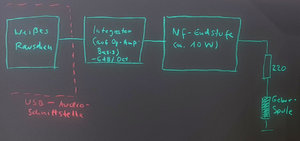 Weißes
Rauschen
Integrator
(auf Op-Amp-
Basis)
-6dB/Oct.
NF-Endstufe
(ca. 10W)
220
Geber-
Spule
USB-Audio-
Schnittstelle